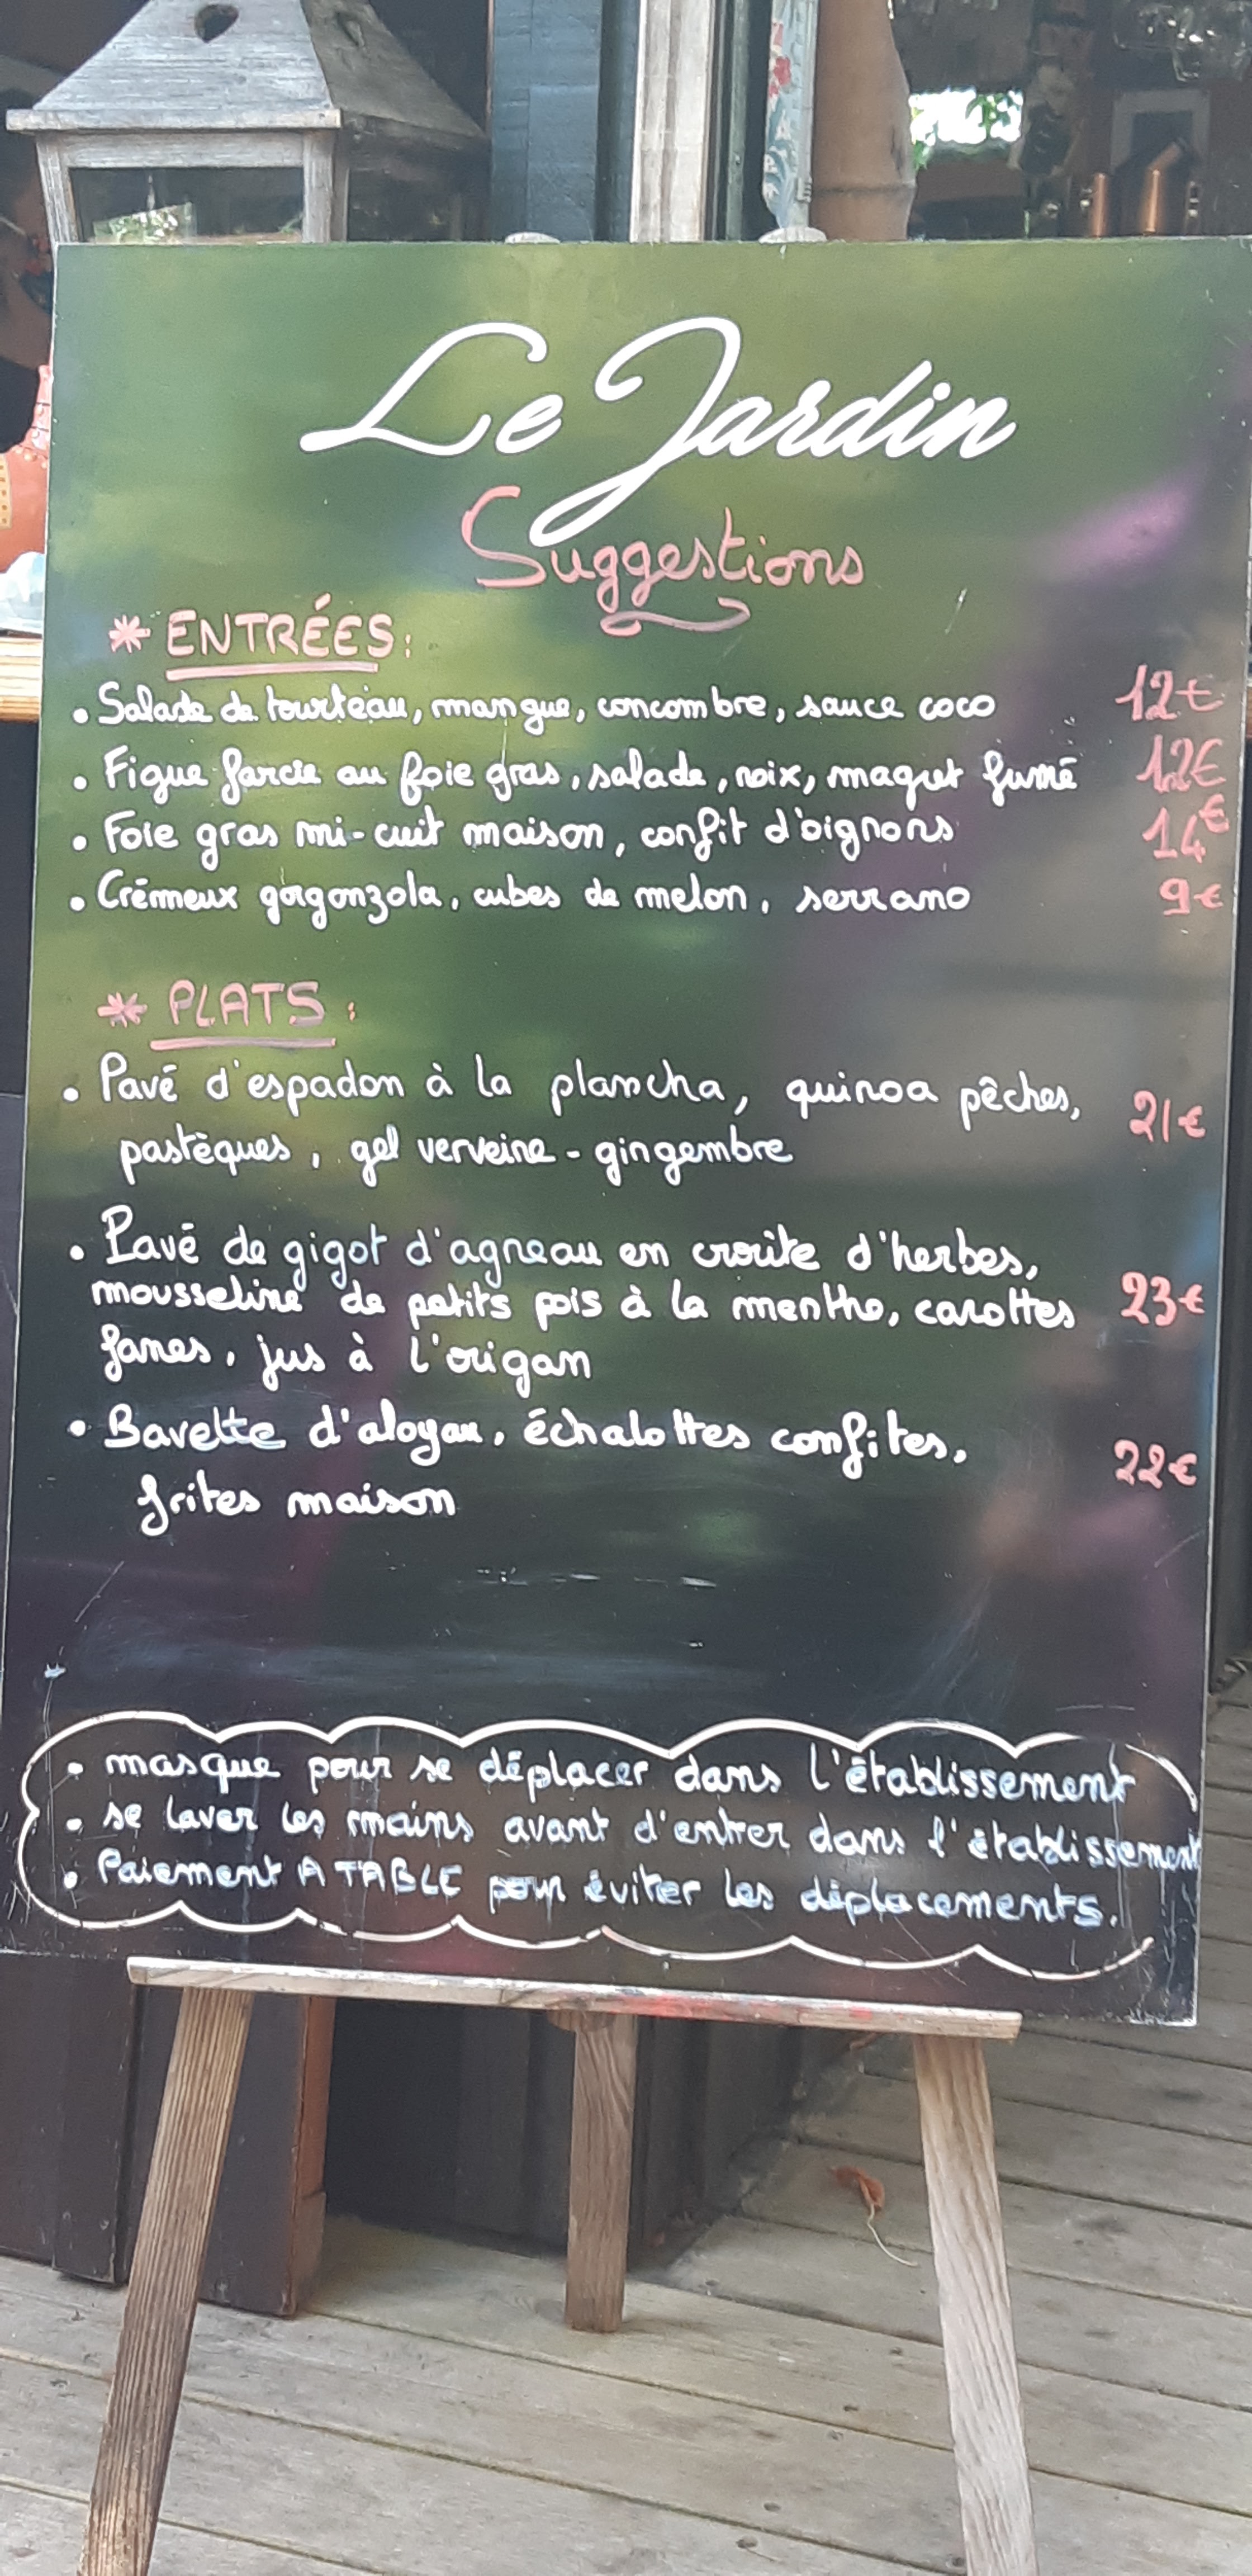 Le Jardin
Suggestions
* ENTRÉES:
• Salade de tourteau, mangue, concombre, sauce coco 12€
• Figue farcie au foie gras, salade, noix, magret fumé 12€
• Foie gras mi-cuit maison, confit d'oignons 14€
• Crémeux gorgonzola, cubes de melon, serrano 9€
* PLATS:
• Pavé d'espadon à la plancha, quinoa pêches, 21€
pastèques, gel verveine-gingembre
• Pavé de gigot d'agneau en croûte d'herbes,
mousseline de petits pois à la menthe, carottes 23€
fanes, jus à l'origan
• Bavette d'aloyau, échalottes confites, 22€
frites maison
• masque pour se déplacer dans l'établissement
• se laver les mains avant d'entrer dans l'établissement
• Paiement A TABLE pour éviter les déplacements.